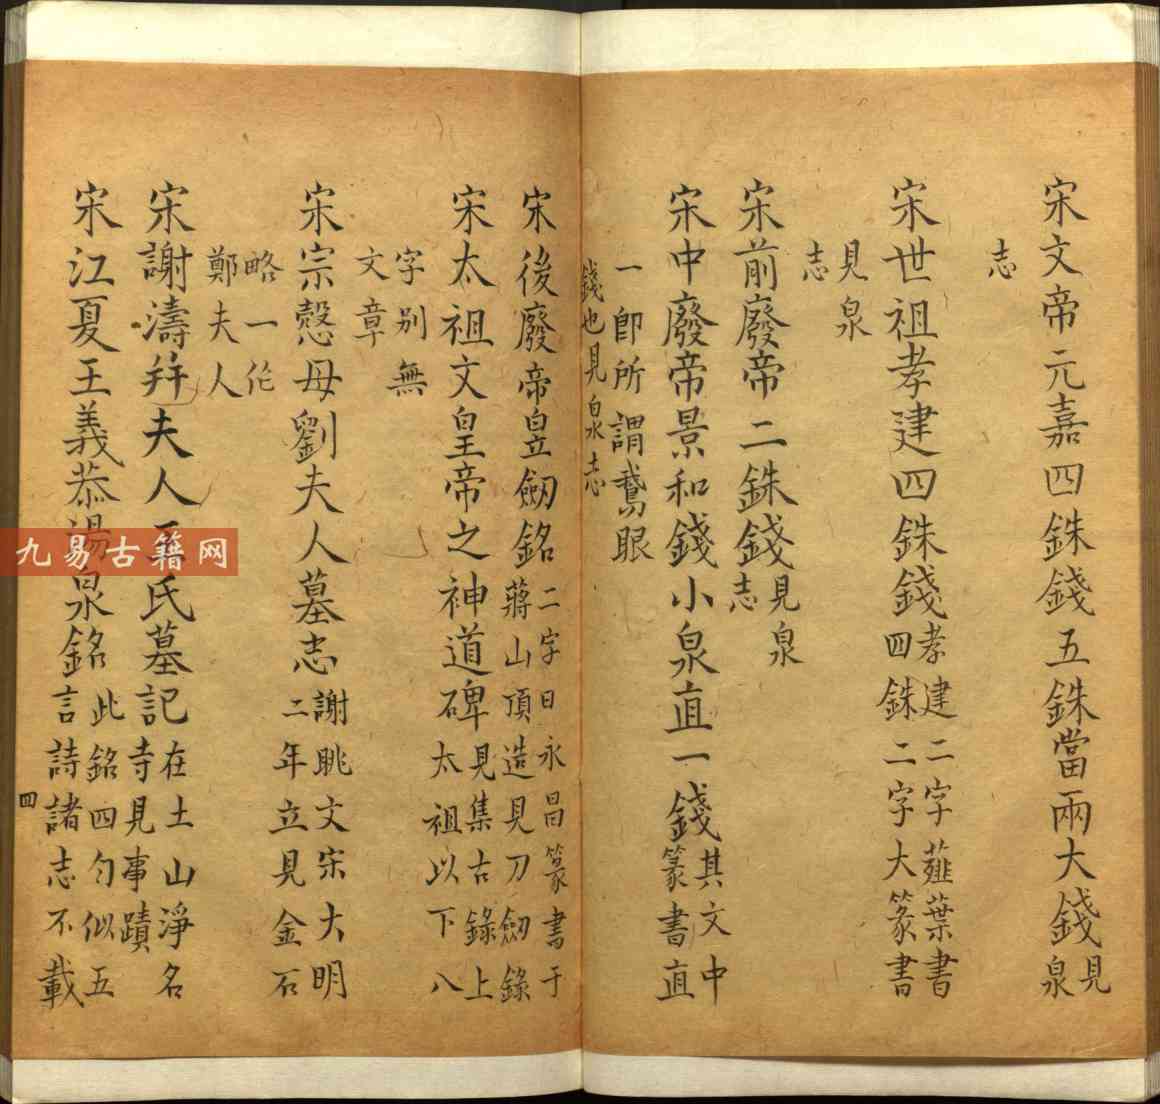 宋文帝元嘉四銖錢五銖當兩大錢見
泉
志
宋世祖孝建四銖錢孝建二字薤葉書
四銖二字大篆書
見泉
志
宋前廢帝二銖錢見泉
志
宋中廢帝景和錢小泉直一錢其文中
篆書直
一即所謂鵞眼
錢也見泉志
宋後廢帝皇劒銘二字曰永昌篆書于
蔣山頂造見刀劒錄
宋太祖文皇帝之神道碑見集古錄上
太祖以下八
字别無
文章
宋宗慤母劉夫人墓志謝眺文宋大明
二年立見金石
略一作
鄭夫人
宋謝濤幷夫人氏墓記在土山淨名
寺見事蹟
宋江夏王義恭湯泉銘此銘四句似五
言詩諸志不載
四
九易古籍网